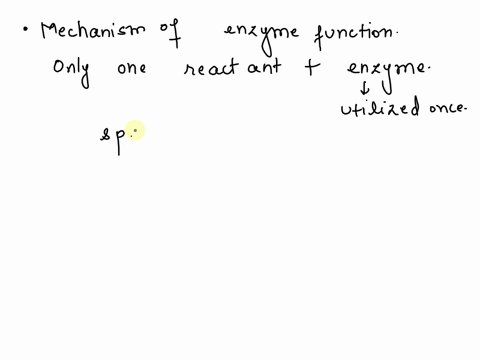 • Mechanism of enzyme function.
Only one reactant + enzyme.
↓
utilized once.
sp